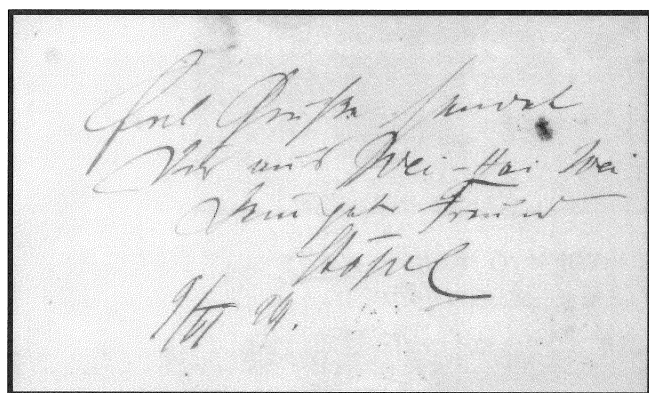 Viel Grüße sendet
Dir aus Wei-Hai Wei
Dein guter Freund
Stöpel
9/VI 99.